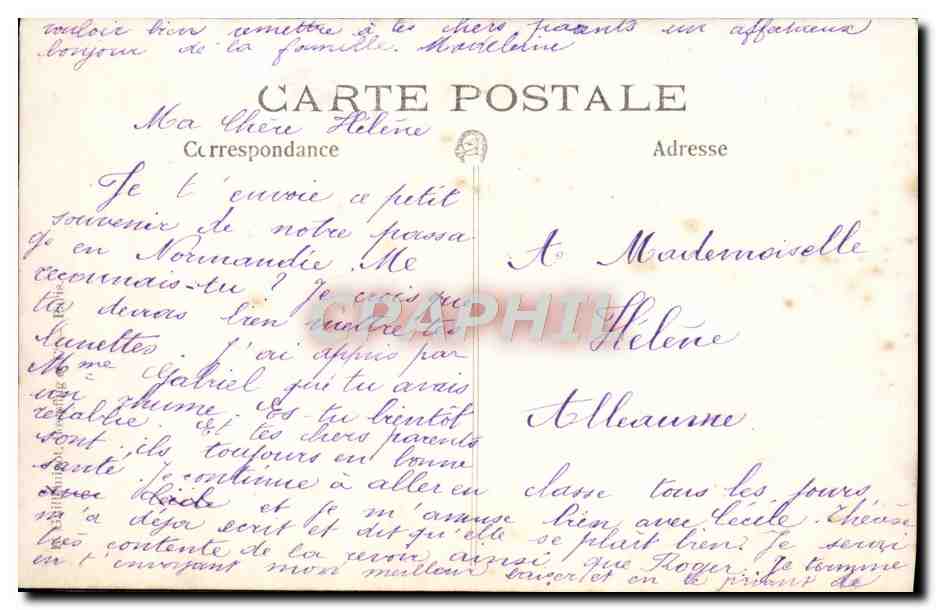 CARTE POSTALE
Correspondance
Adresse
Ma Chère Hélène
Je t'envoie ce petit
souvenir de notre passa
ge en Normandie. Me
reconnais-tu ? Je crois qu
tu devras bien mettre tes
lunettes. J'ai appris par
Mme Gabriel qu'tu avais
un rhume. Es tu bientôt
rétablie. Et tes chers parents
sont, ils toujours en bonne
santé. Je continue à aller en classe tous les jours
et je m'amuse bien avec Cécile. Thérèse
m'a déja ecrit et dit qu'elle se plaît bien. Je serai
très contente de la revoir ainsi que Roger. Je termine
en t'envoyant mon meilleur baiser et en te priant de
vouloir bien remettre à tes chers parents un affectueux
bonjour de la famille. Madeleine
A Mademoiselle
Hélène
Alleaume
CPAPHIL